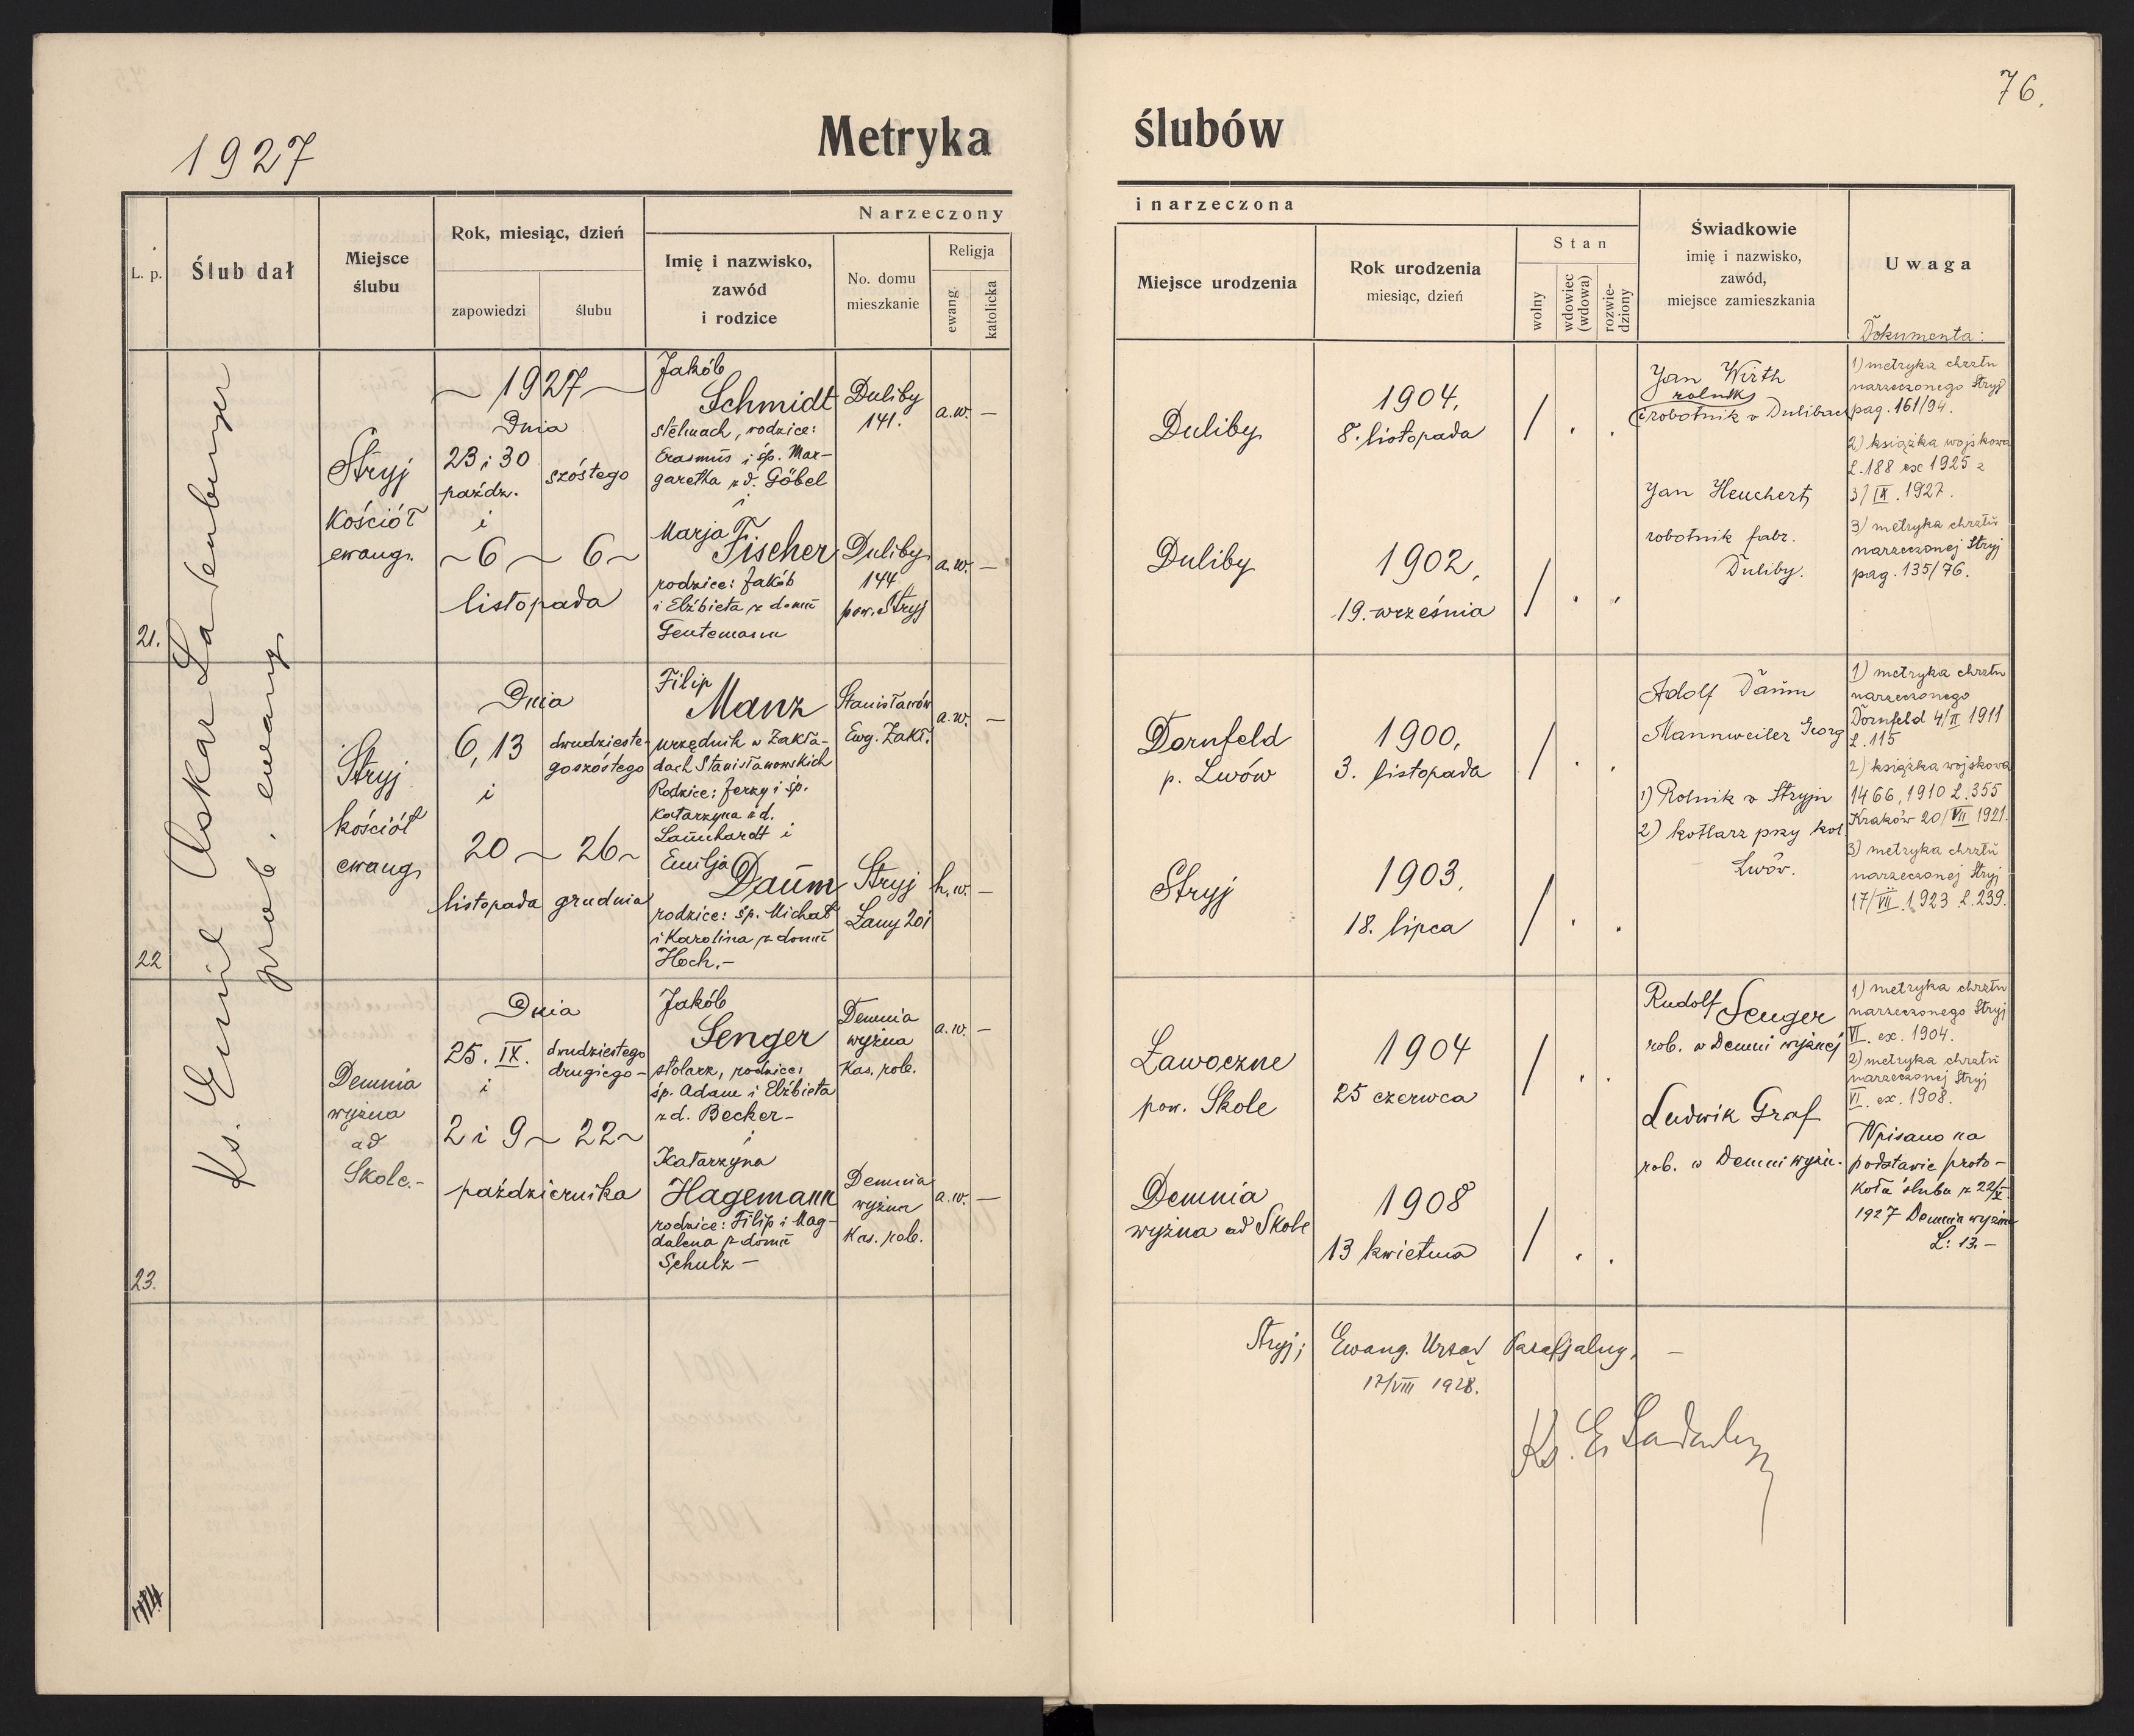 76.
1927
Metryka ślubów
L. p.
Ślub dał
Miejsce
ślubu
Rok, miesiąc, dzień
zapowiedzi
ślubu
Narzeczony
Imię i nazwisko,
zawód
i rodzice
No. domu
mieszkanie
Religja
ewang.
katolicka
i narzeczona
Miejsce urodzenia
Rok urodzenia
miesiąc, dzień
Stan
wolny
wdowiec
(wdowa)
rozwie-
dziony
Świadkowie
imię i nazwisko,
zawód,
miejsce zamieszkania
Uwaga
Dokumenta:
Ks. Emil Oskar Ladenberger
prob. ewang.
21.
Stryj
Kościół
ewang.
~ 1927 ~
Dnia
23 i 30
paźdz.
i
szóstego
~ 6 ~ 6 ~
listopada
Jakób
Schmidt
stelmach, rodzice:
Erasmus i śp. Mar-
garetha z d. Göbel
i
Duliby
141.
a.w. —
Marja
Fischer
rodzice: Jakób
i Elżbieta z domu
Gentemann
Duliby
144
pow. Stryj
a.w. —
Duliby
1904.
8. listopada
/ . .
Duliby
1902.
19. września
/ . .
Jan Wirth
rolnik
robotnik w Dulibach
Jan Heuchert,
robotnik fabr.
Duliby.
1) metryka chrztu
narzeczonego Stryj
pag. 161/94.
2) książka wojskowa
L. 188 ex 1925 z
3/IX. 1927.
3) metryka chrztu
narzeczonej Stryj
pag. 135/76.
22
Stryj
kościół
ewang.
Dnia
6, 13
i
dwudzieste-
goszóstego
20 ~ 26 ~
listopada grudnia
Filip
Manz
urzędnik w Zakła-
dach Stanisławowskich
Rodzice: Jerzy i śp.
Katarzyna z d.
Launhardt i
Stanisławów
Ewg. Zakł.
a.w. —
Emilja
Daum
rodzice: śp. Michał
i Karolina z domu
Hoch. —
Stryj
Łany 201
h.w. —
Dornfeld
p. Lwów
1900.
3. listopada
/ . .
Stryj
1903.
18. lipca
/ . .
Adolf Daum
Mannweiler Georg
1) Rolnik w Stryju
2) kotlarz przy kol.
Lwów.
1) metryka chrztu
narzeczonego
Dornfeld 4/II 1911
L. 115
2) książka wojskowa
1466, 1910 L. 355
Kraków 20/VII 1921.
3) metryka chrztu
narzeczonej Stryj
17/VII. 1923 L. 239.
23.
Demnia
wyżna
ad
Skole. -
Dnia
25. IX.
i
dwudziestego
drugiego -
2 i 9 ~ 22 ~
października
Jakób
Senger
stolarz, rodzice:
śp. Adam i Elżbieta
z d. Becker —
i
Demnia
wyżna
Kas. rob.
a.w. —
Katarzyna
Hagemann
rodzice: Filip i Mag-
dalena z domu
Schulz —
Demnia
wyżna
Kas. rob.
a.w. —
Ławoczne
pow. Skole
1904
25 czerwca
/ . .
Demnia
wyżna ad Skole
1908
13 kwietnia
/ . .
Rudolf Senger
rob. w Demni wyżnej
Ludwik Graf
rob. w Demni wyżn.
1) metryka chrztu
narzeczonego Stryj
VI. ex. 1904.
2) metryka chrztu
narzeczonej Stryj
VI. ex. 1908.
Wpisano na
podstawie proto-
koła ślubu z 22/X.
1927 Demnia wyżna
L: 13. —
Stryj; Ewang. Urząd Parafjalny. —
17/VIII 1928.
Ks. E. Ladenberger